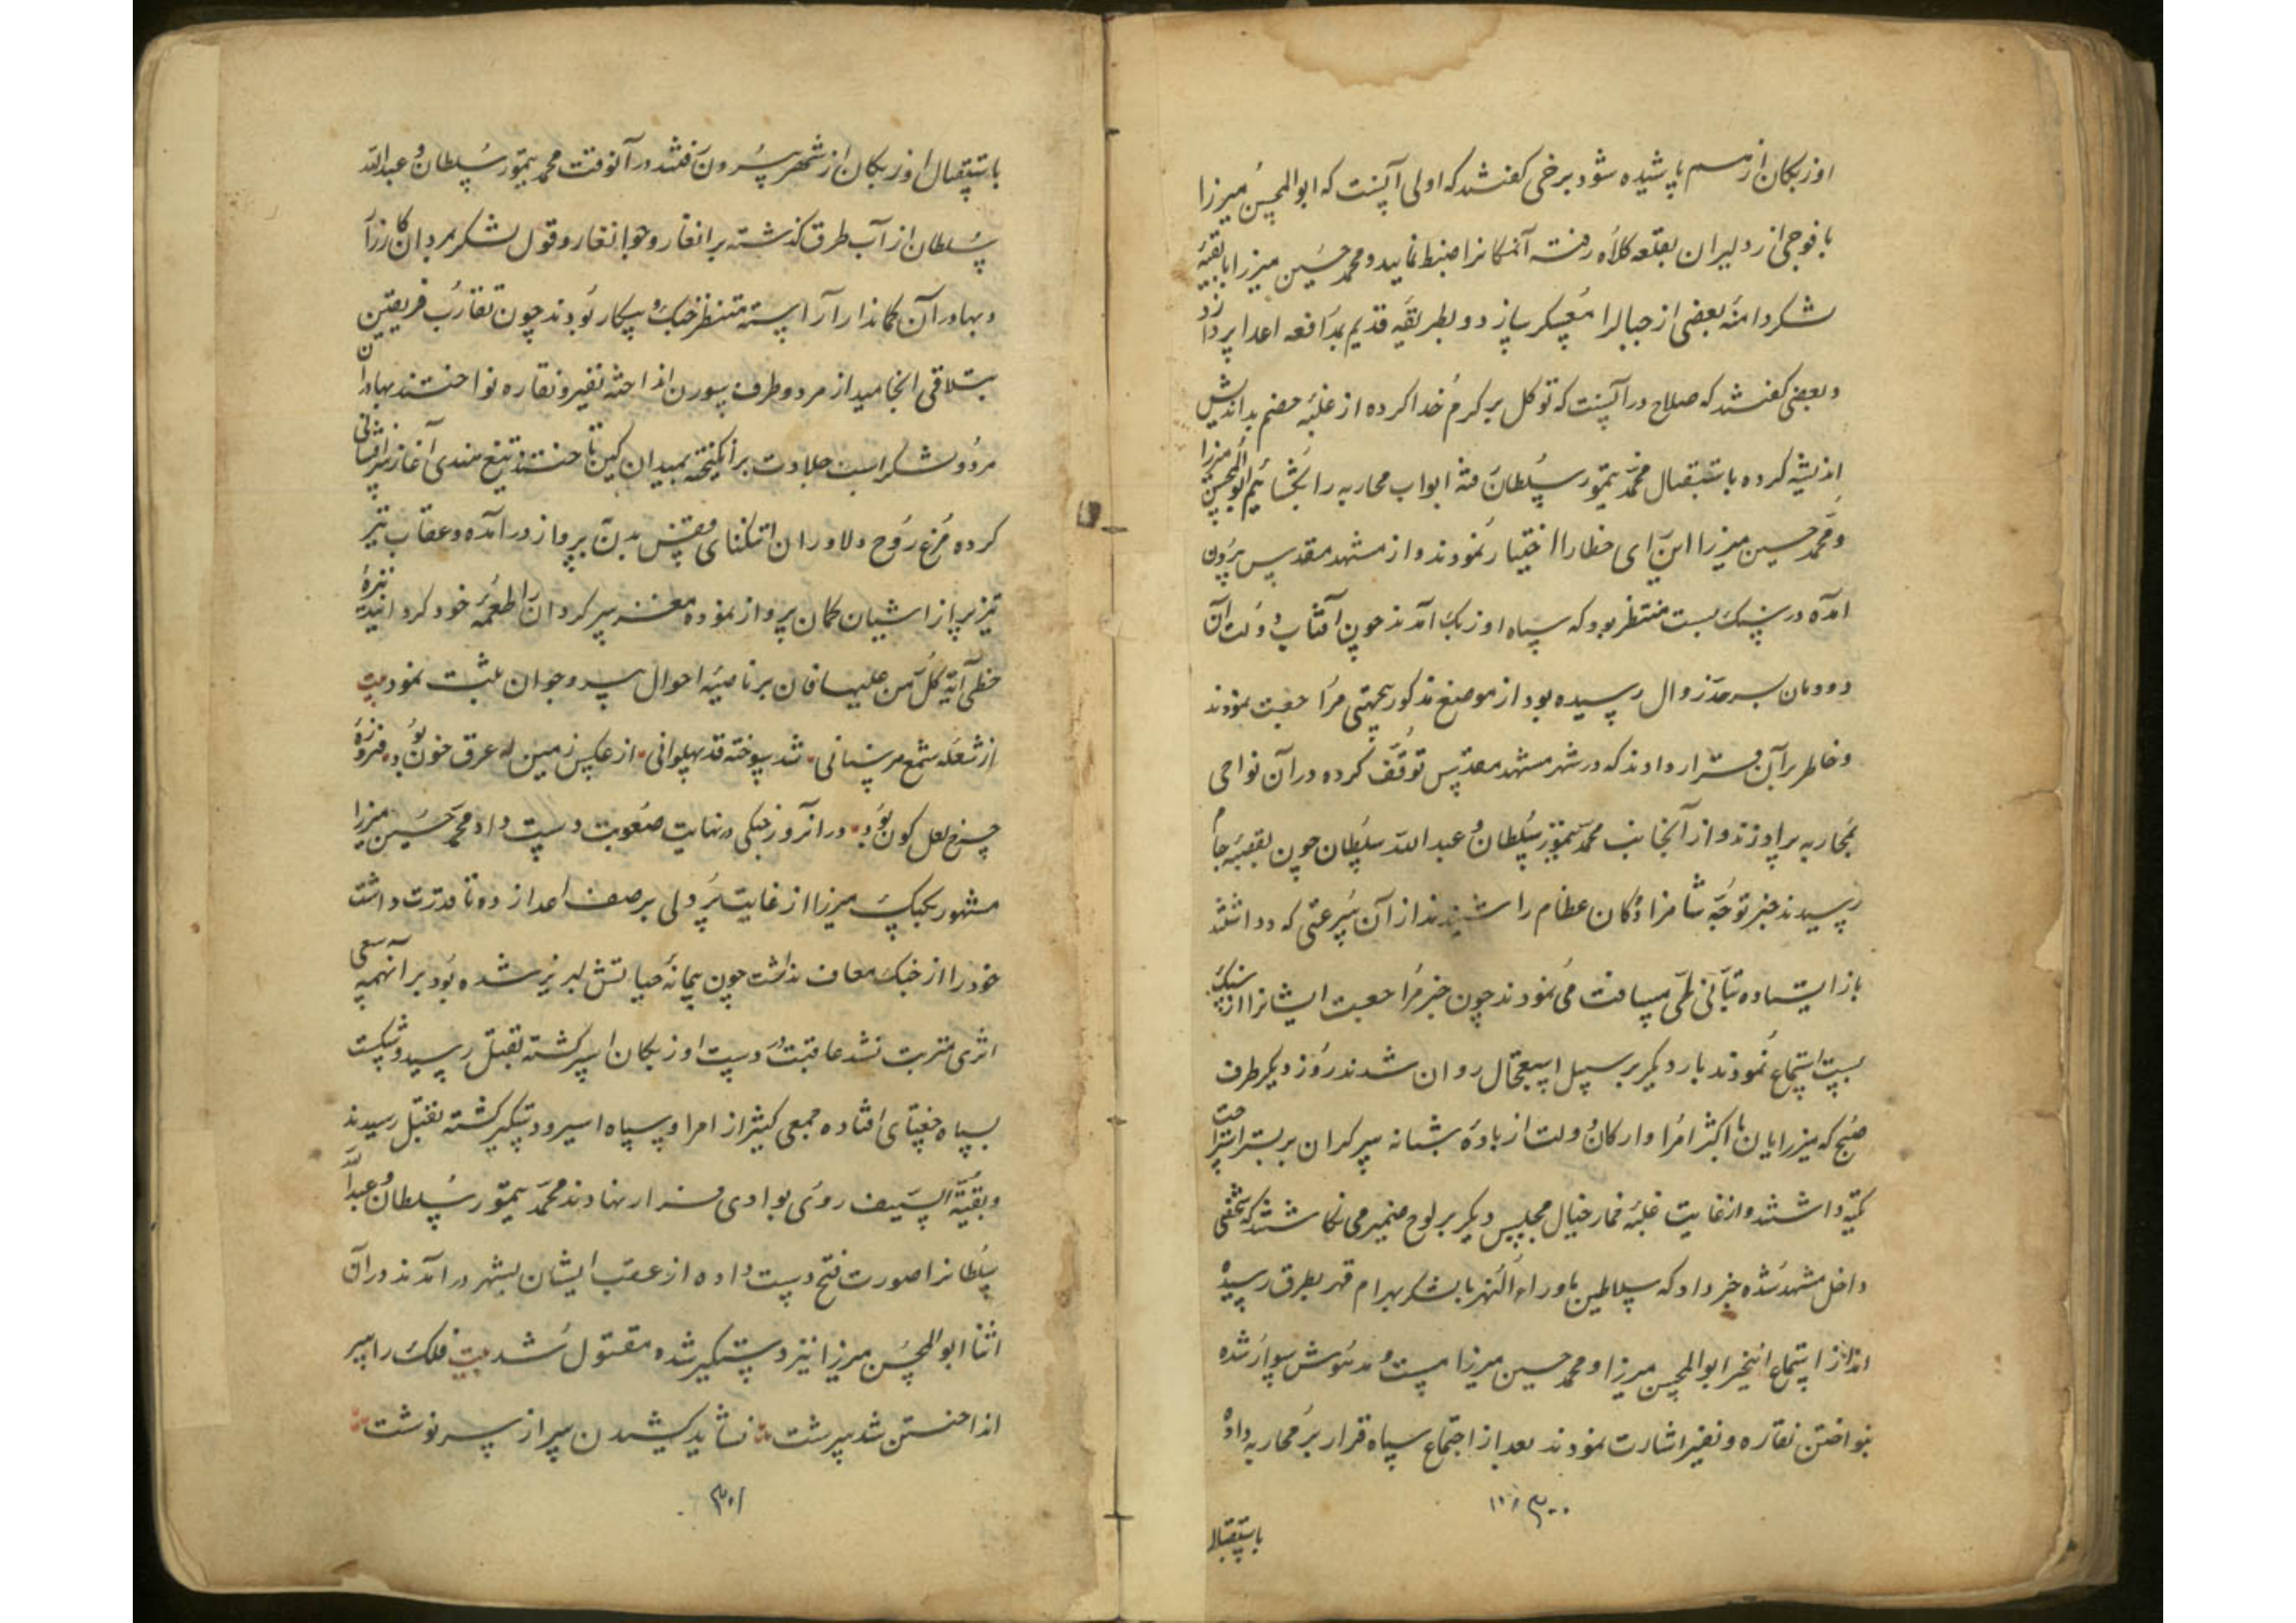 اوزبکان از هم پاشیده شود برخی گفتند که اولی آنست که ابوالمحسن میرزا
با فوجی از دلیران بقلعه کلاه رفته آنمکانرا ضبط نماید و محمد حسین میرزا با بقیه
لشکر دامنه بعضی از جبال را معسکر سازد و بطریقه قدیم بمدافعه اعدا پردازد
و بعضی گفتند که صلاح در آنست که توکل بر کرم خدا کرده از غلبه خصم بداندیش
اندیشه کرده باستقبال محمد تیمور سلطان رفته ابواب محاربه را بگشائیم ابوالمحسن میرزا
و محمد حسین میرزا این رای خطا را اختیار نمودند و از مشهد مقدس بیرون
آمده در سنک بست منتظر بود که سپاه اوزبک آمدند چون آفتاب دولت آن
دودمان بسرحد زوال رسیده بود از موضع مذکور بجهتی مراجعت نمودند
و خاطر بر آن قرار دادند که در شهر مشهد مقدس توقف کرده در آن نواحی
بمحاربه پردازند و از آنجانب محمد تیمور سلطان و عبدالله سلطان چون بقصبه جام
رسیدند خبر توجه شاهزادگان عظام را شنیدند از آن سرعتی که داشتند
باز ایستاده بتأنی طی مسافت می نمودند چون خبر مراجعت ایشانرا از سنک
بست استماع نمودند بار دیگر بر سبیل استعجال روان شدند روز دیگر طرف
صبح که میرزایان با اکثر امرا و ارکان دولت از باده شبانه سر گران بر بستر استراحت
تکیه داشتند و از غایت غلبه خمار خیال مجلس دیگر بر لوح ضمیر می نگاشتند که شخصی
داخل مشهد شده خبر داد که سلاطین ماوراء النهر با لشکر بهرام قهر بطرق رسیده
اند از استماع اینخبر ابوالمحسن میرزا و محمد حسین میرزا مست و مدهوش سوار شده
بنواختن نقاره و نفیر اشارت نمودند بعد از اجتماع سپاه قرار بر محاربه داده
۳۰۰
باستقبال
باستقبال اوزبکان از شهر بیرون رفتند در آنوقت محمد تیمور سلطان و عبدالله
سلطان از آب طرق گذشته برانغار و جوانغار و قول لشکر بمردان کارزار
و بهادران کماندار آراسته منتظر جنک و پیکار بودند چون تقارب فریقین
بتلاقی انجامید از هر دو طرف سورن انداخته نفیر و نقاره نواختند بهادران
هر دو لشکر اسب جلادت برانگیخته بمیدان کین تاختند و تیغ هندی آغاز سرافشانی
کرده مرغ روح دلاوران از تنکنای قفس بدن بپرواز درآمده و عقاب تیر
تیزپر از آشیان کمان پرواز نموده مغز سر گردان را طعمه خود گردانید نیزه
خطی آیه کل من علیها فان بر ناصیه احوال پیر و جوان ثبت نمود بیت
از شعله شمع هر سنانی شد سوخته قد پهلوانی از عکس زمین که عرق خون بود فیروزه
چرخ لعل کون بود در آنروز جنکی در نهایت صعوبت دست داد محمد حسین میرزا
مشهور بکپک میرزا از غایت پردلی بر صف اعدا زده تا قدرت داشت
خود را از جنک معاف نداشت چون پیمانه حیاتش لبریز شده بود بر آنهمه سعی
اثری مترتب نشد عاقبت در دست اوزبکان اسیر گشته بقتل رسید و شکست
بسپاه جغتای افتاده جمعی کثیر از امرا و سپاه اسیر و دستگیر گشته بقتل رسیدند
و بقیة السیف روی بوادی فرار نهادند محمد تیمور سلطان و عبدالله
سلطانرا صورت فتح دست داده از عقب ایشان بشهر درآمدند در آن
اثنا ابوالمحسن میرزا نیز دستگیر شده مقتول شد بیت فلک را سر
انداختن شد سرشت نشاید کشیدن سر از سرنوشت
۳۰۱